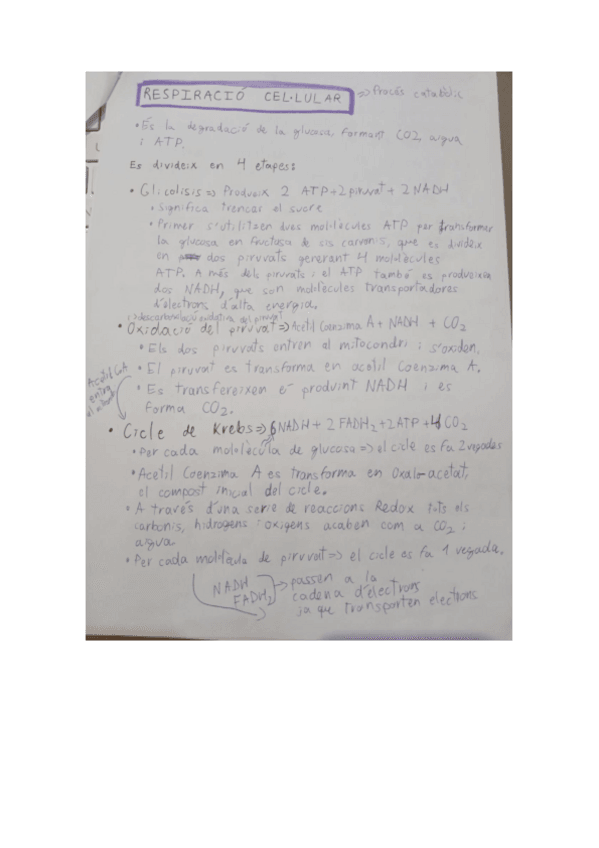 RESPIRACIÓ CEL·LULAR => Procés catabòlic
• És la degradació de la glucosa formant CO2 aigua
i ATP.
Es divideix en 4 etapes:
• Glicolisis => Produeix 2 ATP + 2 piruvat + 2 NADH
• Significa trencar el sucre
• Primer s'utilitzen dues mol·lècules ATP per transformar
la glucosa en fructosa de sis carbonis, que es divideix
en dos piruvats generant 4 mol·lècules
ATP. A més dels piruvats i el ATP també es produeixen
dos NADH, que son mol·lècules transportadores
d'electrons d'alta energia.
=> descarboxilació oxidativa del piruvat
• Oxidació del piruvat => Acetil Coenzima A + NADH + CO2
• Els dos piruvats entren al mitocondri i s'oxiden.
• El piruvat es transforma en acetil Coenzima A.
• Es transfereixen e- produint NADH i es
forma CO2.
Acetil CoA
entra
al
• Cicle de Krebs => 6 NADH + 2 FADH2 + 2 ATP + 4 CO2
• Per cada mol·lècula de glucosa => el cicle es fa 2 vegades
• Acetil Coenzima A es transforma en Oxalo-acetat,
el compost inicial del cicle.
• A través d'una serie de reaccions Redox tots els
carbonis, hidrogens i oxigens acaben com a CO2 i
aigua
• Per cada mol·lècula de piruvat => el cicle es fa 1 vegada.
NADH
FADH2
passen a la
cadena d'electrons
ja que transporten electrons